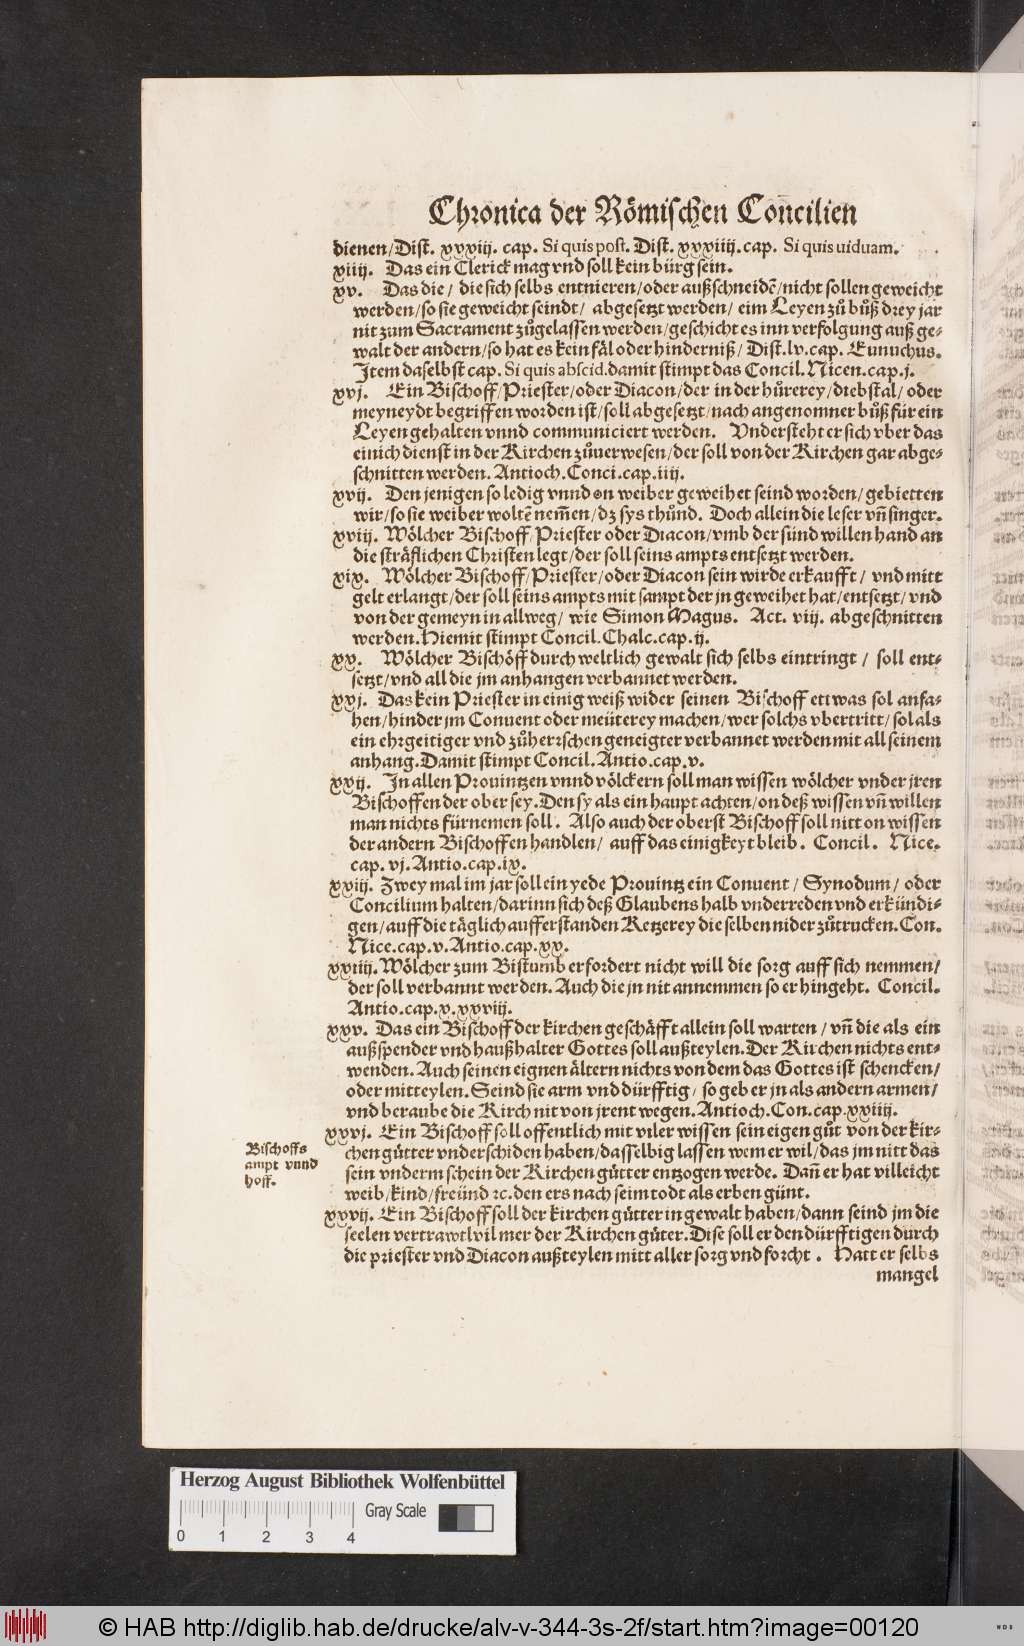 Chronica der Römischen Concilien
dienen/Dist. xxxiij. cap. Si quis post. Dist. xxxiiij. cap. Si quis uiduam.
xiiij. Das ein Clerick mag vnd soll kein bürg sein.
xv. Das die / die sich selbs entnieren/oder außschneidē/nicht sollen geweicht
werden/so sie geweicht seindt / abgesetzt werden / eim Leyen zů bůß drey jar
nit zum Sacrament zůgelassen werden/geschicht es inn verfolgung auß ge⸗
walt der andern/so hat es kein fäl oder hinderniß / Dist. lv. cap. Eunuchus.
Item daselbst cap. Si quis abscid. damit stimpt das Concil. Nicen. cap. j.
xvj. Ein Bischoff/Priester/oder Diacon/der in der hůrerey/diebstal/ oder
meyneydt begriffen worden ist/soll abgesetzt/nach angenomner bůß für ein
Leyen gehalten vnnd communiciert werden. Vndersteht er sich vber das
einich dienst in der Kirchen zůuerwesen/der soll von der Kirchen gar abge⸗
schnitten werden. Antioch. Conci. cap. iiij.
xvij. Den jenigen so ledig vnnd on weiber geweihet seind worden/gebietten
wir/so sie weiber woltē nem̄en/dz sys thůnd. Doch allein die leser vn̄ singer.
xviij. Wölcher Bischoff/Priester oder Diacon/vmb der sünd willen hand an
die sträflichen Christen legt/der soll seins ampts entsetzt werden.
xix. Wölcher Bischoff/Priester/oder Diacon sein wirde erkaufft / vnd mitt
gelt erlangt/der soll seins ampts mit sampt der jn geweihet hat/entsetzt/vnd
von der gemeyn in allweg/ wie Simon Magus. Act. viij. abgeschnitten
werden. Hiemit stimpt Concil. Chalc. cap. ij.
xx. Wölcher Bischöff durch weltlich gewalt sich selbs eintringt / soll ent⸗
setzt/vnd all die jm anhangen verbannet werden.
xxj. Das kein Priester in einig weiß wider seinen Bischoff ettwas sol anfa⸗
hen/hinder jm Conuent oder meüterey machen/wer solchs vbertritt/sol als
ein ehrgeitiger vnd zůherrschen geneigter verbannet werden mit all seinem
anhang. Damit stimpt Concil. Antio. cap. v.
xxij. In allen Prouintzen vnnd völckern soll man wissen wölcher vnder jren
Bischoffen der ober sey. Den sy als ein haupt achten/on deß wissen vn̄ willen
man nichts fürnemen soll. Also auch der oberst Bischoff soll nitt on wissen
der andern Bischoffen handlen/ auff das einigkeyt bleib. Concil. Nice.
cap. vj. Antio. cap. ix.
xxiij. Zwey mal im jar soll ein yede Prouintz ein Conuent / Synodum / oder
Concilium halten/darinn sich deß Glaubens halb vnderreden vnd erkündi⸗
gen/auff die täglich aufferstanden Ketzerey die selben nider zůtrucken. Con.
Nice. cap. v. Antio. cap. xx.
xxiiij. Wölcher zum Bistumb erfordert nicht will die sorg auff sich nemmen/
der soll verbannt werden. Auch die jn nit annemmen so er hingeht. Concil.
Antio. cap. v. xxviij.
xxv. Das ein Bischoff der kirchen geschäfft allein soll warten / vn̄ die als ein
außspender vnd haußhalter Gottes soll außteylen. Der Kirchen nichts ent⸗
wenden. Auch seinen eignen ältern nichts von dem das Gottes ist schencken/
oder mitteylen. Seind sie arm vnd dürfftig/ so geb er jn als andern armen/
vnd beraube die Kirch nit von jrent wegen. Antioch. Con. cap. xxiiij.
xxvj. Ein Bischoff soll offentlich mit viler wissen sein eigen gůt von der kir⸗
chen gütter vnderschiden haben/dasselbig lassen wem er wil/das jm nitt das
sein vnderm schein der Kirchen gütter entzogen werde. Dan̄ er hat villeicht
weib/kind/freünd ꝛc. den ers nach seim todt als erben günt.
xxvij. Ein Bischoff soll der kirchen gütter in gewalt haben/dann seind jm die
seelen vertrawt/vil mer der Kirchen güter. Dise soll er den dürfftigen durch
die priester vnd Diacon außteylen mitt aller sorg vnd forcht. Hatt er selbs
mangel
Bischoffs
ampt vnnd
hoff.
Herzog August Bibliothek Wolfenbüttel
Gray Scale
0 1 2 3 4
© HAB http://diglib.hab.de/drucke/alv-v-344-3s-2f/start.htm?image=00120